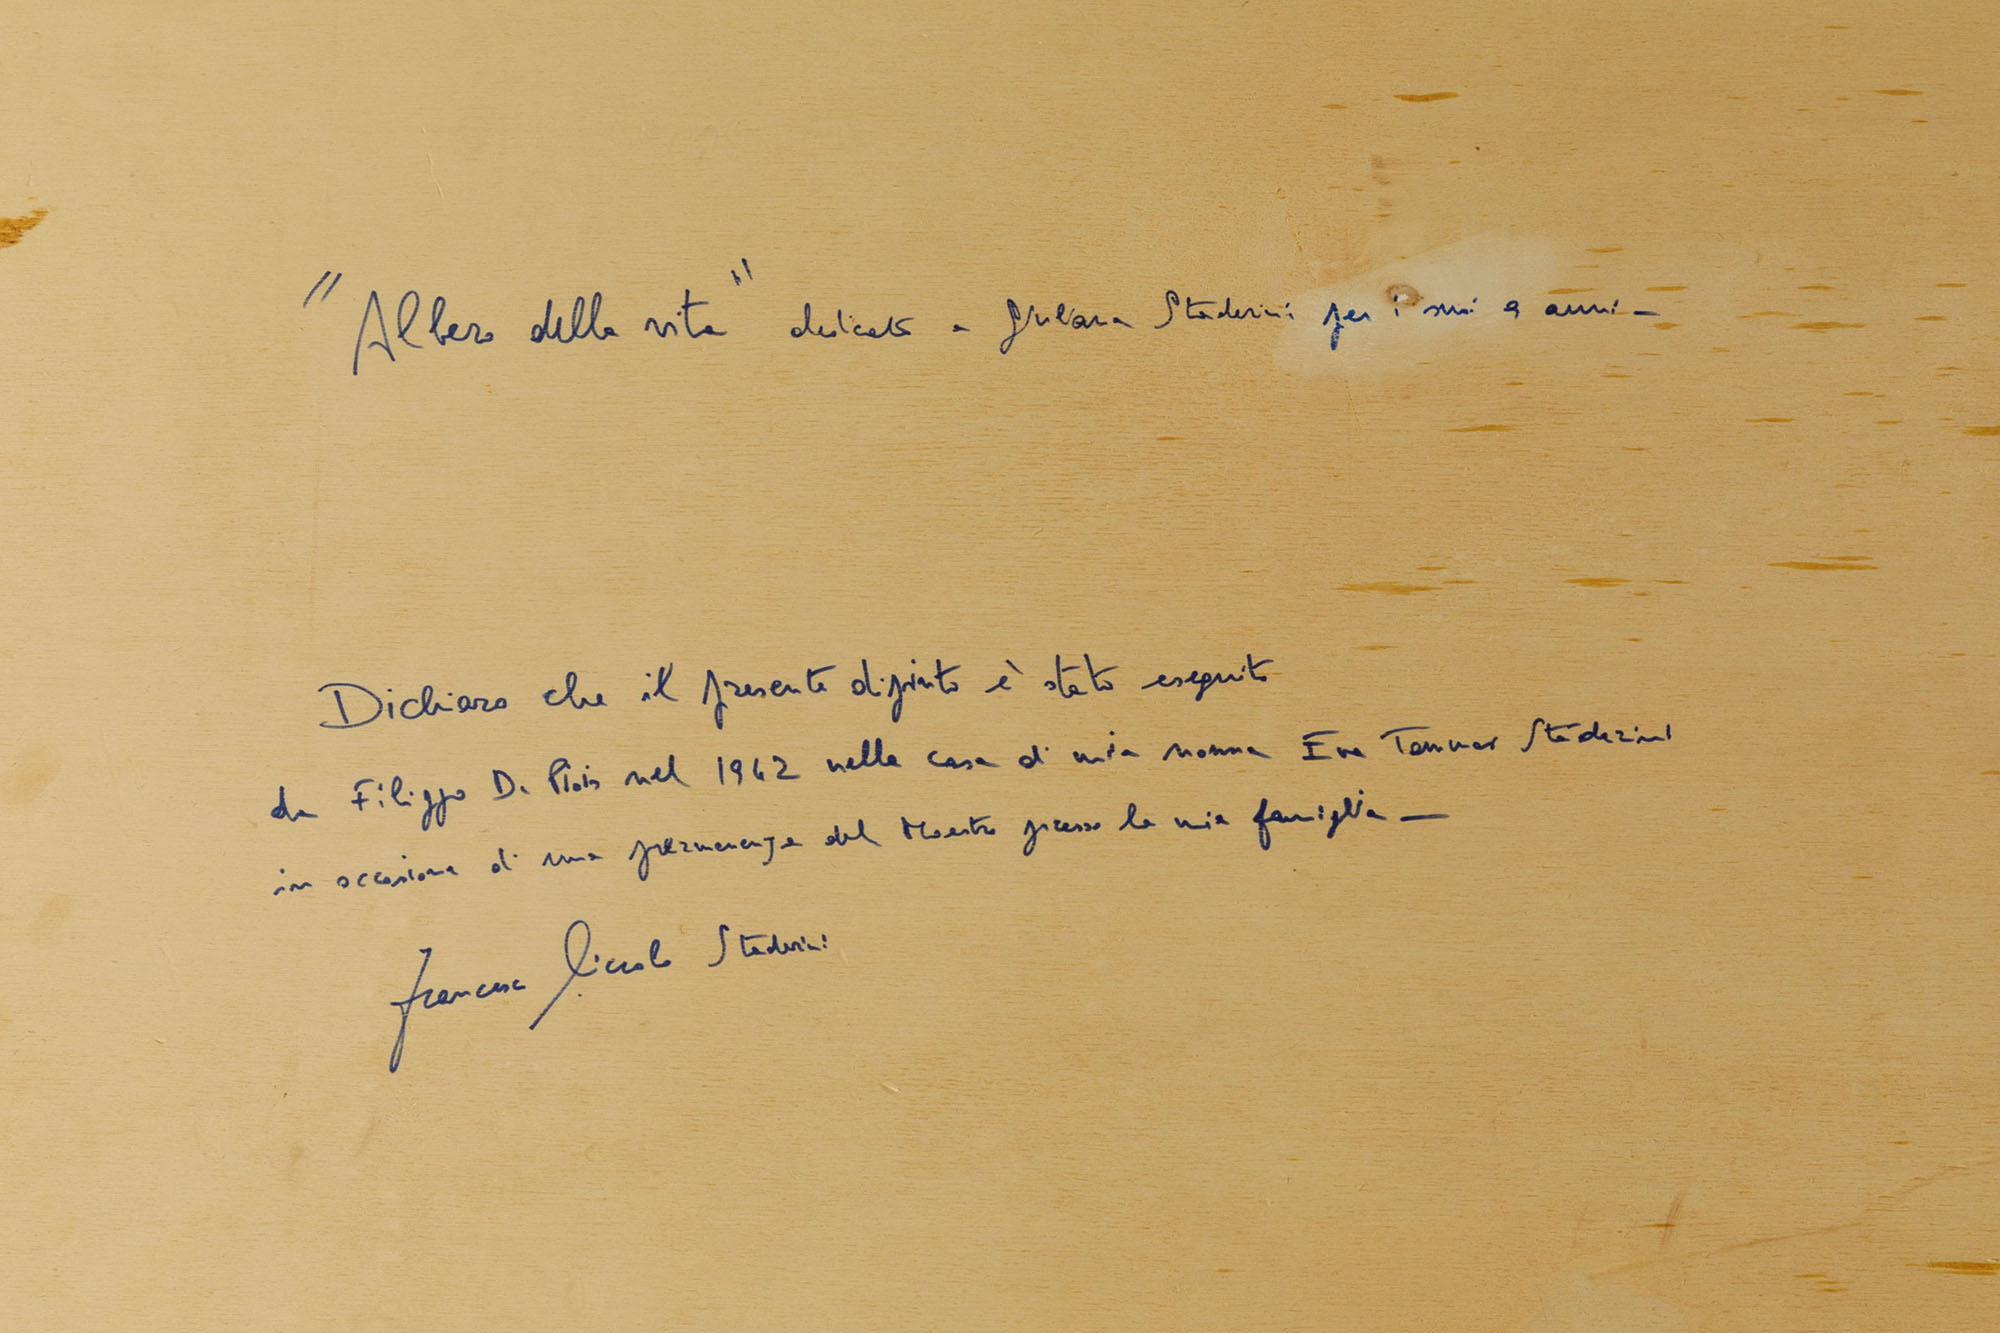 "Albero della vita" dedicato a Giuliana Staderini per i suoi 9 anni -
Dichiaro che il presente dipinto è stato eseguito
da Filippo De Pisis nel 1942 nella casa di mia nonna Eva Staderini
in occasione di una permanenza del Maestro presso la mia famiglia -
Francesca Staderini